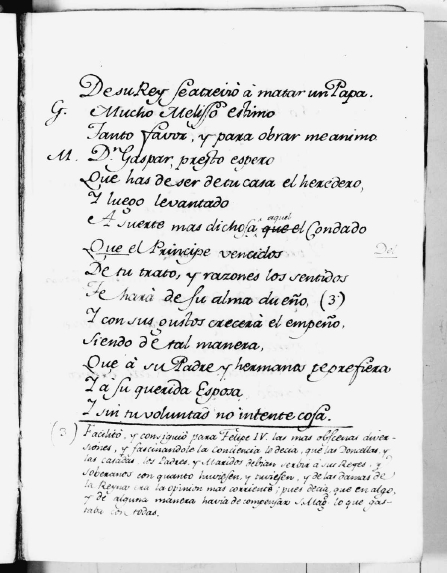 De su Rey se atreviò à matar un Papa.
G. Mucho Melisso estimo
Tanto favor, y para obrar me animo
M. Dn. Gaspar, presto espero
Que has de ser de tu casa el heredero,
Y luego levantado
A suerte mas dichosa, que el aquel Condado
Que el Principe vencidos
De tu trato, y razones los sentidos
Te harà de su alma dueño, (3)
Y con sus gustos crecerà el empeño,
Siendo de tal manera,
Que à su Padre y hermanos te prefiera
Y a su querida Esposa
Y sin tu voluntad no intente cosa.
(3) Facilitó, y consiguió para Felipe IV. las mas obscenas diver-
siones, y fascinandole la Conciencia le decia, que las Doncellas, y
las casadas, los Padres, y Maridos debian servir à sus Reyes, y
soberanos con quanto huviesen, y tuviesen, y de las damas de
la Reyna era la opinion mas corriente; pues decia, que en algo,
y de alguna manera havia de compensar S. Mag. lo que gas-
taba con todas.